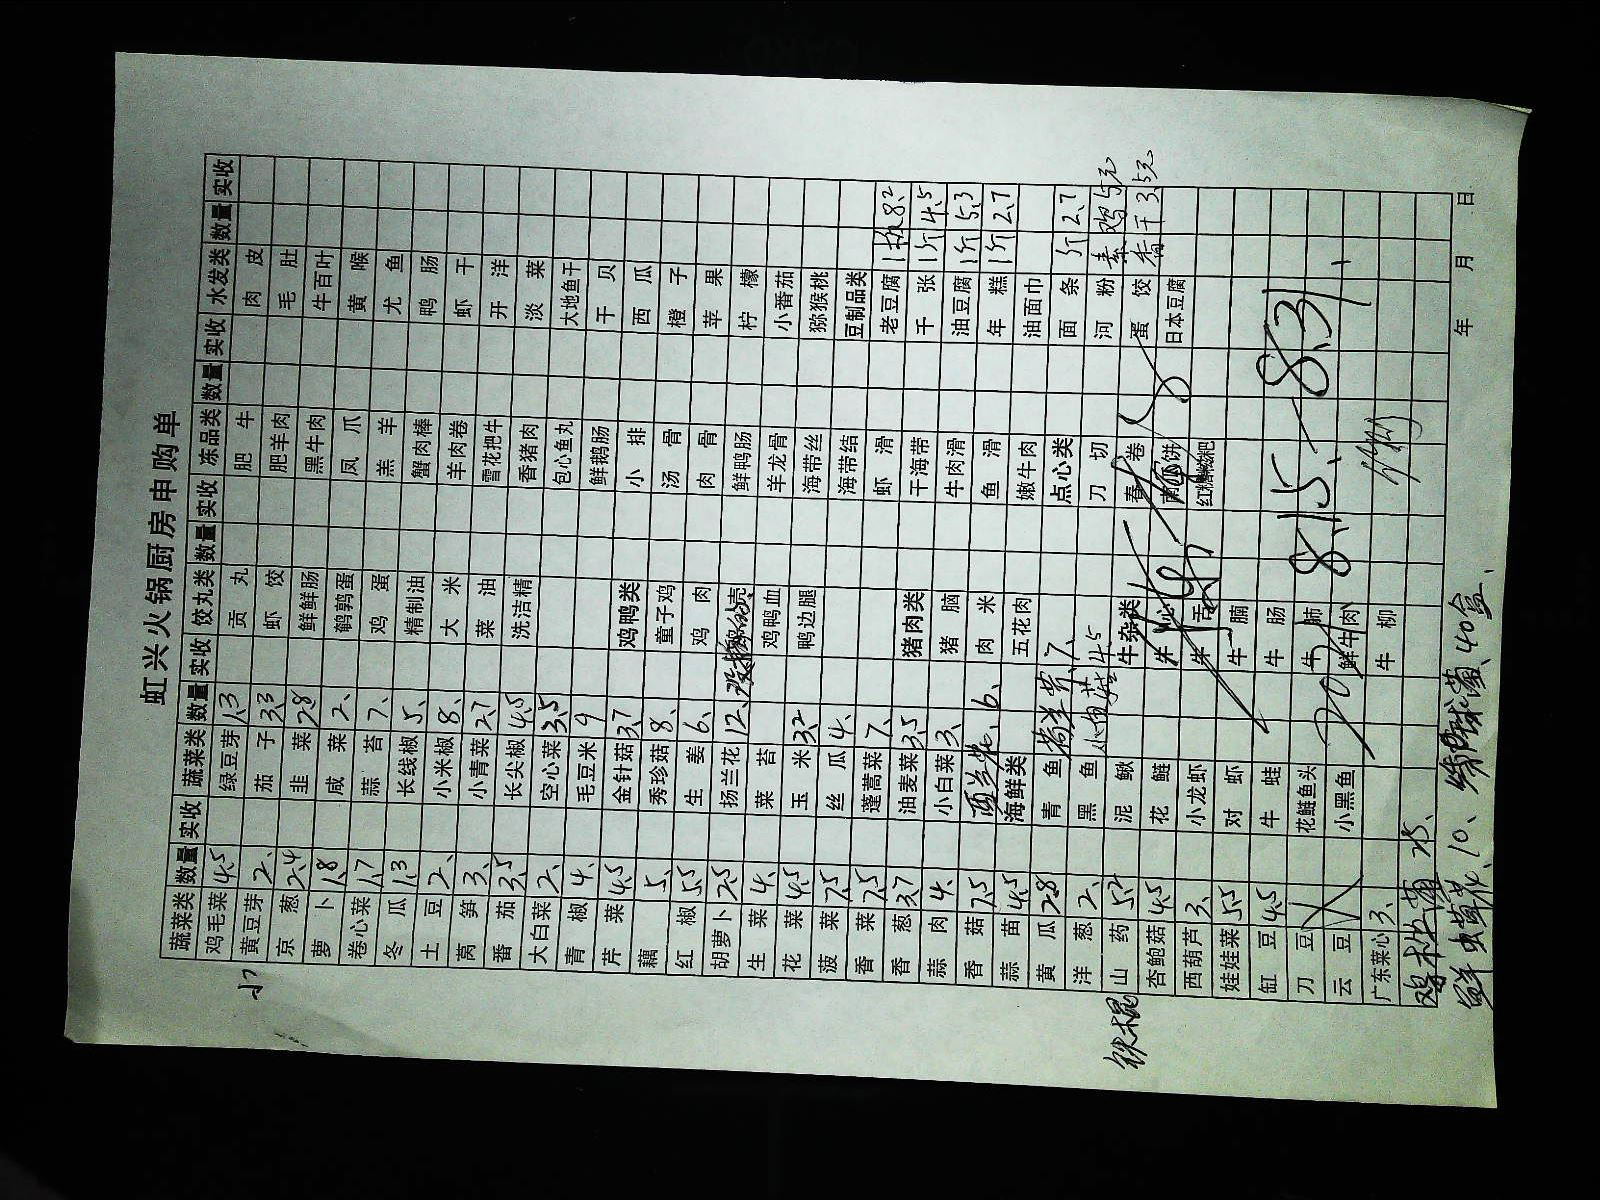 虹兴火锅厨房申购单
蔬菜类 数量 实收 蔬菜类 数量 实收 饺丸类 数量 实收 冻品类 数量 实收 水发类 数量 实收
鸡毛菜 4.5 绿豆芽 1.3 贡丸 肥牛 肉皮
黄豆芽 2、 茄子 3.3 虾饺 肥羊肉 毛肚
京葱 2.4 韭菜 2.8 鲜鲜肠 黑牛肉 牛百叶
萝卜 1.8 咸菜 2、 鹌鹑蛋 凤爪 黄喉
卷心菜 1.7 蒜苔 7、 鸡蛋 羔羊 尤鱼
冬瓜 1.3 长线椒 5、 精制油 蟹肉棒 鸭肠
土豆 2、 小米椒 8、 大米 羊肉卷 虾干
莴笋 3、 小青菜 2.7 菜油 雪花把牛 开洋
番茄 3.5 长尖椒 4.5 洗洁精 香猪肉 淡菜
大白菜 2、 空心菜 3.5 包心鱼丸 大地鱼干
青椒 4、 毛豆米 9 鲜鹅肠 干贝
芹菜 4.5 金针菇 3.7 鸡鸭类 小排 西瓜
藕 5、 秀珍菇 8、 童子鸡 汤骨 橙子
红椒 5.5 生姜 6、 鸡肉 肉骨 苹果
胡萝卜 2.5 扬兰花 12、 鲜鸭肠 柠檬
生菜 4、 菜苔 鸡鸭血 羊龙骨 小番茄
花菜 4.5 玉米 3.2 鸭边腿 海带丝 猕猴桃
菠菜 7.5 丝瓜 4、 海带结 豆制品类
香菜 7.5 蓬蒿菜 7、 虾滑 老豆腐 1板 8.2
香葱 3.7 油麦菜 3.5 猪肉类 干海带 千张 1斤 4.5
蒜肉 4、 小白菜 3、 猪脑 牛肉滑 油豆腐 1斤 5.3
香菇 7.5 西兰花 6、 肉米 鱼滑 年糕 1斤 2.7
蒜苗 4.5 海鲜类 五花肉 嫩牛肉 油面巾
黄瓜 2.8 青鱼 7、 点心类 面条 斤 2.7
洋葱 2、 黑鱼 4.5 刀切 河粉 素鸡 5元
铁棍 山药 5.2 泥鳅 牛杂类 春卷 蛋饺 香干 3.5元
杏鲍菇 4.5 花鲢 日本豆腐
西葫芦 3、 小龙虾 红糖糍粑
娃娃菜 5.5 对虾 牛腩
缸豆 4.5 牛蛙 牛肠
刀豆 花鲢鱼头 牛肺 8.15.—8.31
云豆 小黑鱼 鲜牛肉
广东菜心 3、 牛柳
25、
鲜虫草花、10、 40盒、
年 月 日